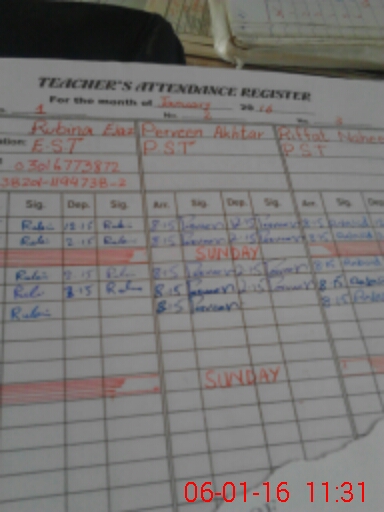 TEACHER'S ATTENDANCE REGISTER
For the month of January 2016
1 No. 2
Rubina Ejaz Perveen Akhtar Riffat Naheed
EST PST PST
03016773872
38201-1194738-2
Sig. Dep. Sig. Arr. Sig. Dep. Sig. Arr. Sig.
Rubi 12.15 Rubi 8.15 Perveen 12.15 Perveen 8.15
Rubi 2.15 Rubi 8.15 Perveen 2.15 Perveen 8.15
SUNDAY
Rubi 2.15 Rubi 8.15 Perveen 2.15 Perveen 8.15
Rubi 8.15 Rubi 8.15 Perveen 2.15 Perveen 8.15
Rubi 8.15 Perveen 8.15
SUNDAY
06-01-16 11:31